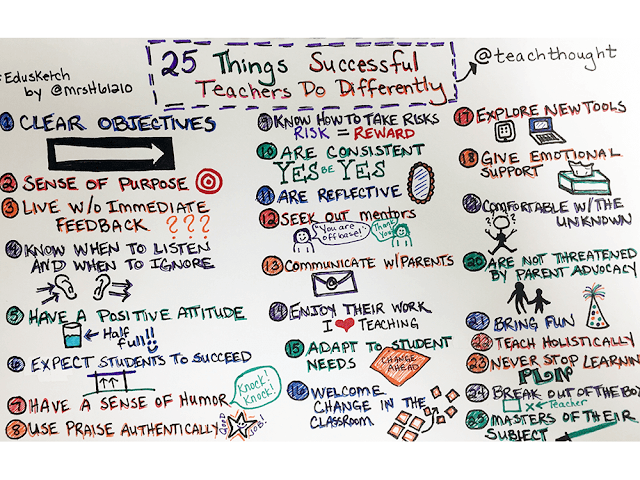 25 Things Successful
Teachers Do Differently
@teachthought
#EduSketch
by @mrsH61210
1 CLEAR OBJECTIVES
2 SENSE OF PURPOSE
3 LIVE W/O IMMEDIATE
FEEDBACK ???
4 KNOW WHEN TO LISTEN
AND WHEN TO IGNORE
5 HAVE A POSITIVE ATTITUDE
Half
full!!
6 EXPECT STUDENTS TO SUCCEED
7 HAVE A SENSE OF HUMOR
Knock!
Knock!
8 USE PRAISE AUTHENTICALLY
GOOD JOB!
9 KNOW HOW TO TAKE RISKS
RISK = REWARD
10 ARE CONSISTENT
YES BE YES
11 ARE REFLECTIVE
12 SEEK OUT mentors
"You are
off base!"
Thank
You!
13 COMMUNICATE W/PARENTS
14 ENJOY THEIR WORK
I ❤ TEACHING
15 ADAPT TO STUDENT
NEEDS
CHANGE
AHEAD
16 WELCOME
CHANGE IN THE
CLASSROOM
17 EXPLORE NEW TOOLS
18 GIVE EMOTIONAL
SUPPORT
19 COMFORTABLE W/THE
UNKNOWN
? ?
20 ARE NOT THREATENED
BY PARENT ADVOCACY
21 BRING FUN
22 TEACH HOLISTICALLY
23 NEVER STOP LEARNIN
24 BREAK OUT OF THE BOX
x ← Teacher
25 MASTERS OF THEIR
SUBJECT